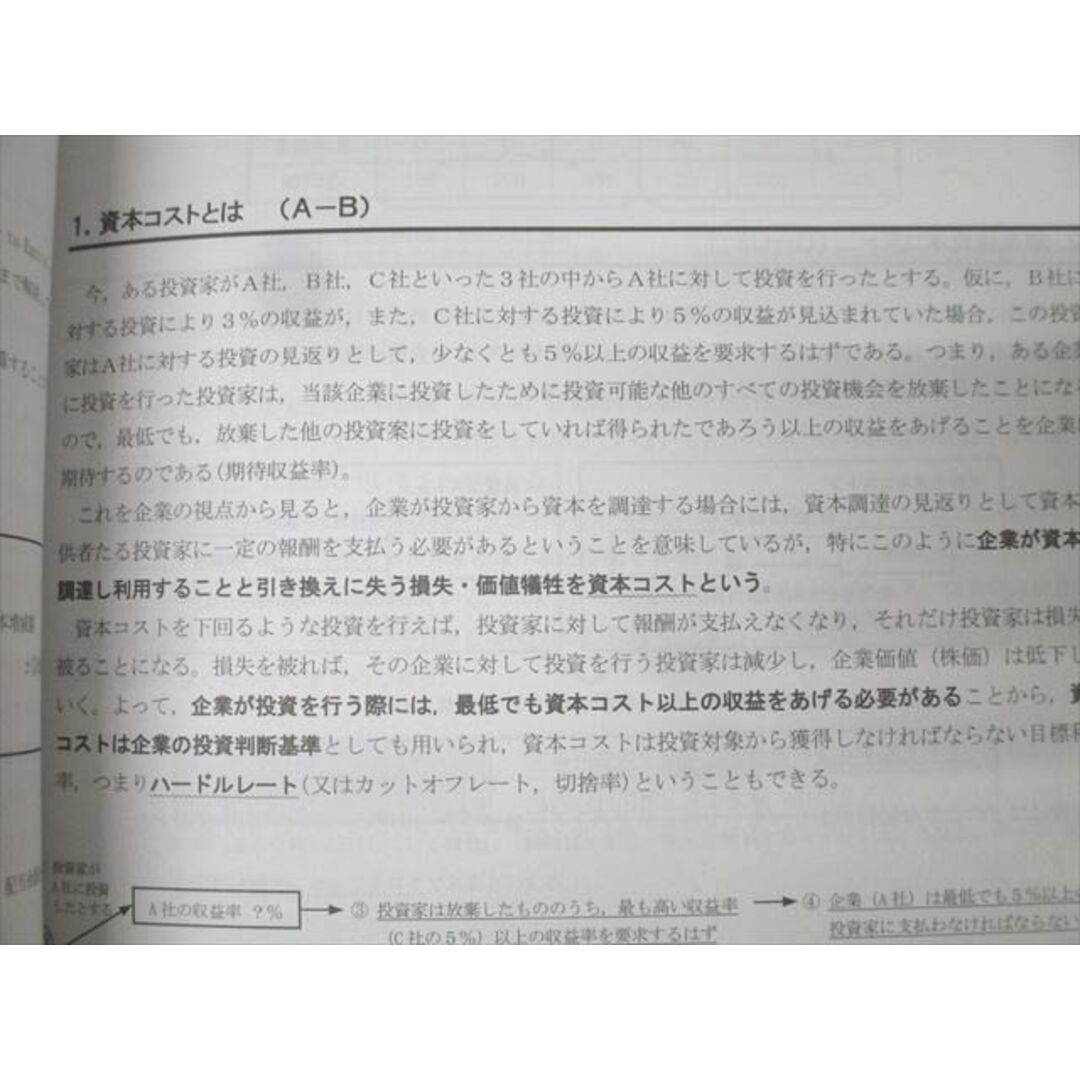 1. 資本コストとは （A－B）
今，ある投資家がＡ社，Ｂ社，Ｃ社といった３社の中からＡ社に対して投資を行ったとする。仮に，Ｂ社に
対する投資により３％の収益が，また，Ｃ社に対する投資により５％の収益が見込まれていた場合，この投資
家はＡ社に対する投資の見返りとして，少なくとも５％以上の収益を要求するはずである。つまり，ある企業
に投資を行った投資家は，当該企業に投資したために投資可能な他のすべての投資機会を放棄したことになる
ので，最低でも，放棄した他の投資案に投資をしていれば得られたであろう以上の収益をあげることを企業に
期待するのである(期待収益率)。
これを企業の視点から見ると，企業が投資家から資本を調達する場合には，資本調達の見返りとして資本
供者たる投資家に一定の報酬を支払う必要があるということを意味しているが，特にこのように企業が資本
調達し利用することと引き換えに失う損失・価値犠牲を資本コストという。
資本コストを下回るような投資を行えば，投資家に対して報酬が支払えなくなり，それだけ投資家は損失
被ることになる。損失を被れば，その企業に対して投資を行う投資家は減少し，企業価値（株価）は低下し
いく。よって，企業が投資を行う際には，最低でも資本コスト以上の収益をあげる必要があることから，資
コストは企業の投資判断基準としても用いられ，資本コストは投資対象から獲得しなければならない目標利
率，つまりハードルレート(又はカットオフレート，切捨率)ということもできる。
投資家が
Ａ社に投資
したとする
Ａ社の収益率 ？％
③ 投資家は放棄したもののうち，最も高い収益率
(Ｃ社の５％) 以上の収益率を要求するはず
④ 企業（Ａ社）は最低でも５％以上の
投資家に支払わなければならない